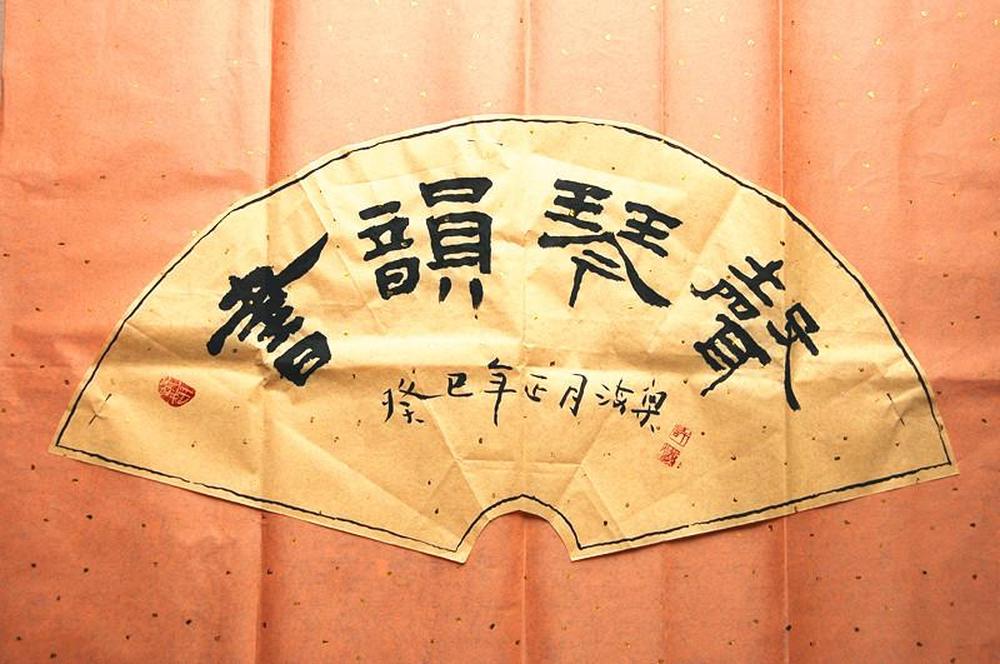 書韻琴聲
癸巳年正月海奥